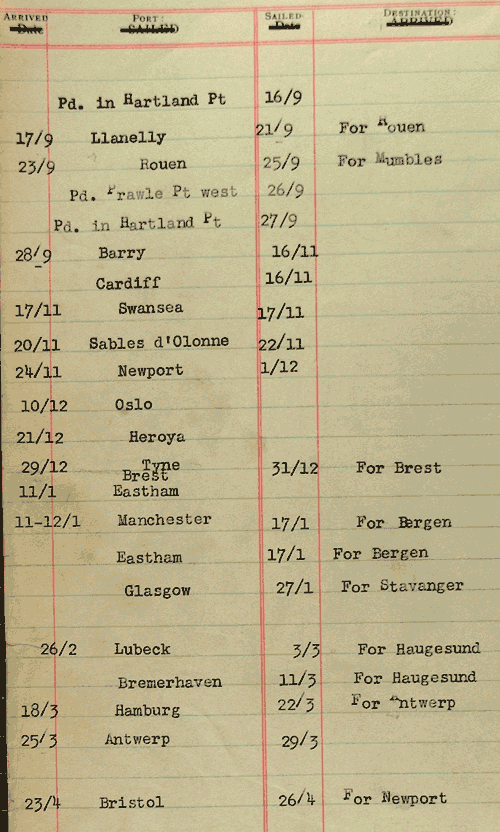 ARRIVED PORT: SAILED DESTINATION:
Date SAILED Date ARRIVED
Pd. in Hartland Pt 16/9
17/9 Llanelly 21/9 For Rouen
23/9 Rouen 25/9 For Mumbles
Pd. Prawle Pt west 26/9
Pd. in Hartland Pt 27/9
28/9 Barry 16/11
Cardiff 16/11
17/11 Swansea 17/11
20/11 Sables d'Olonne 22/11
24/11 Newport 1/12
10/12 Oslo
21/12 Heroya
29/12 Tyne 31/12 For Brest
Brest
11/1 Eastham
11-12/1 Manchester 17/1 For Bergen
Eastham 17/1 For Bergen
Glasgow 27/1 For Stavanger
26/2 Lubeck 3/3 For Haugesund
Bremerhaven 11/3 For Haugesund
18/3 Hamburg 22/3 For Antwerp
25/3 Antwerp 29/3
23/4 Bristol 26/4 For Newport